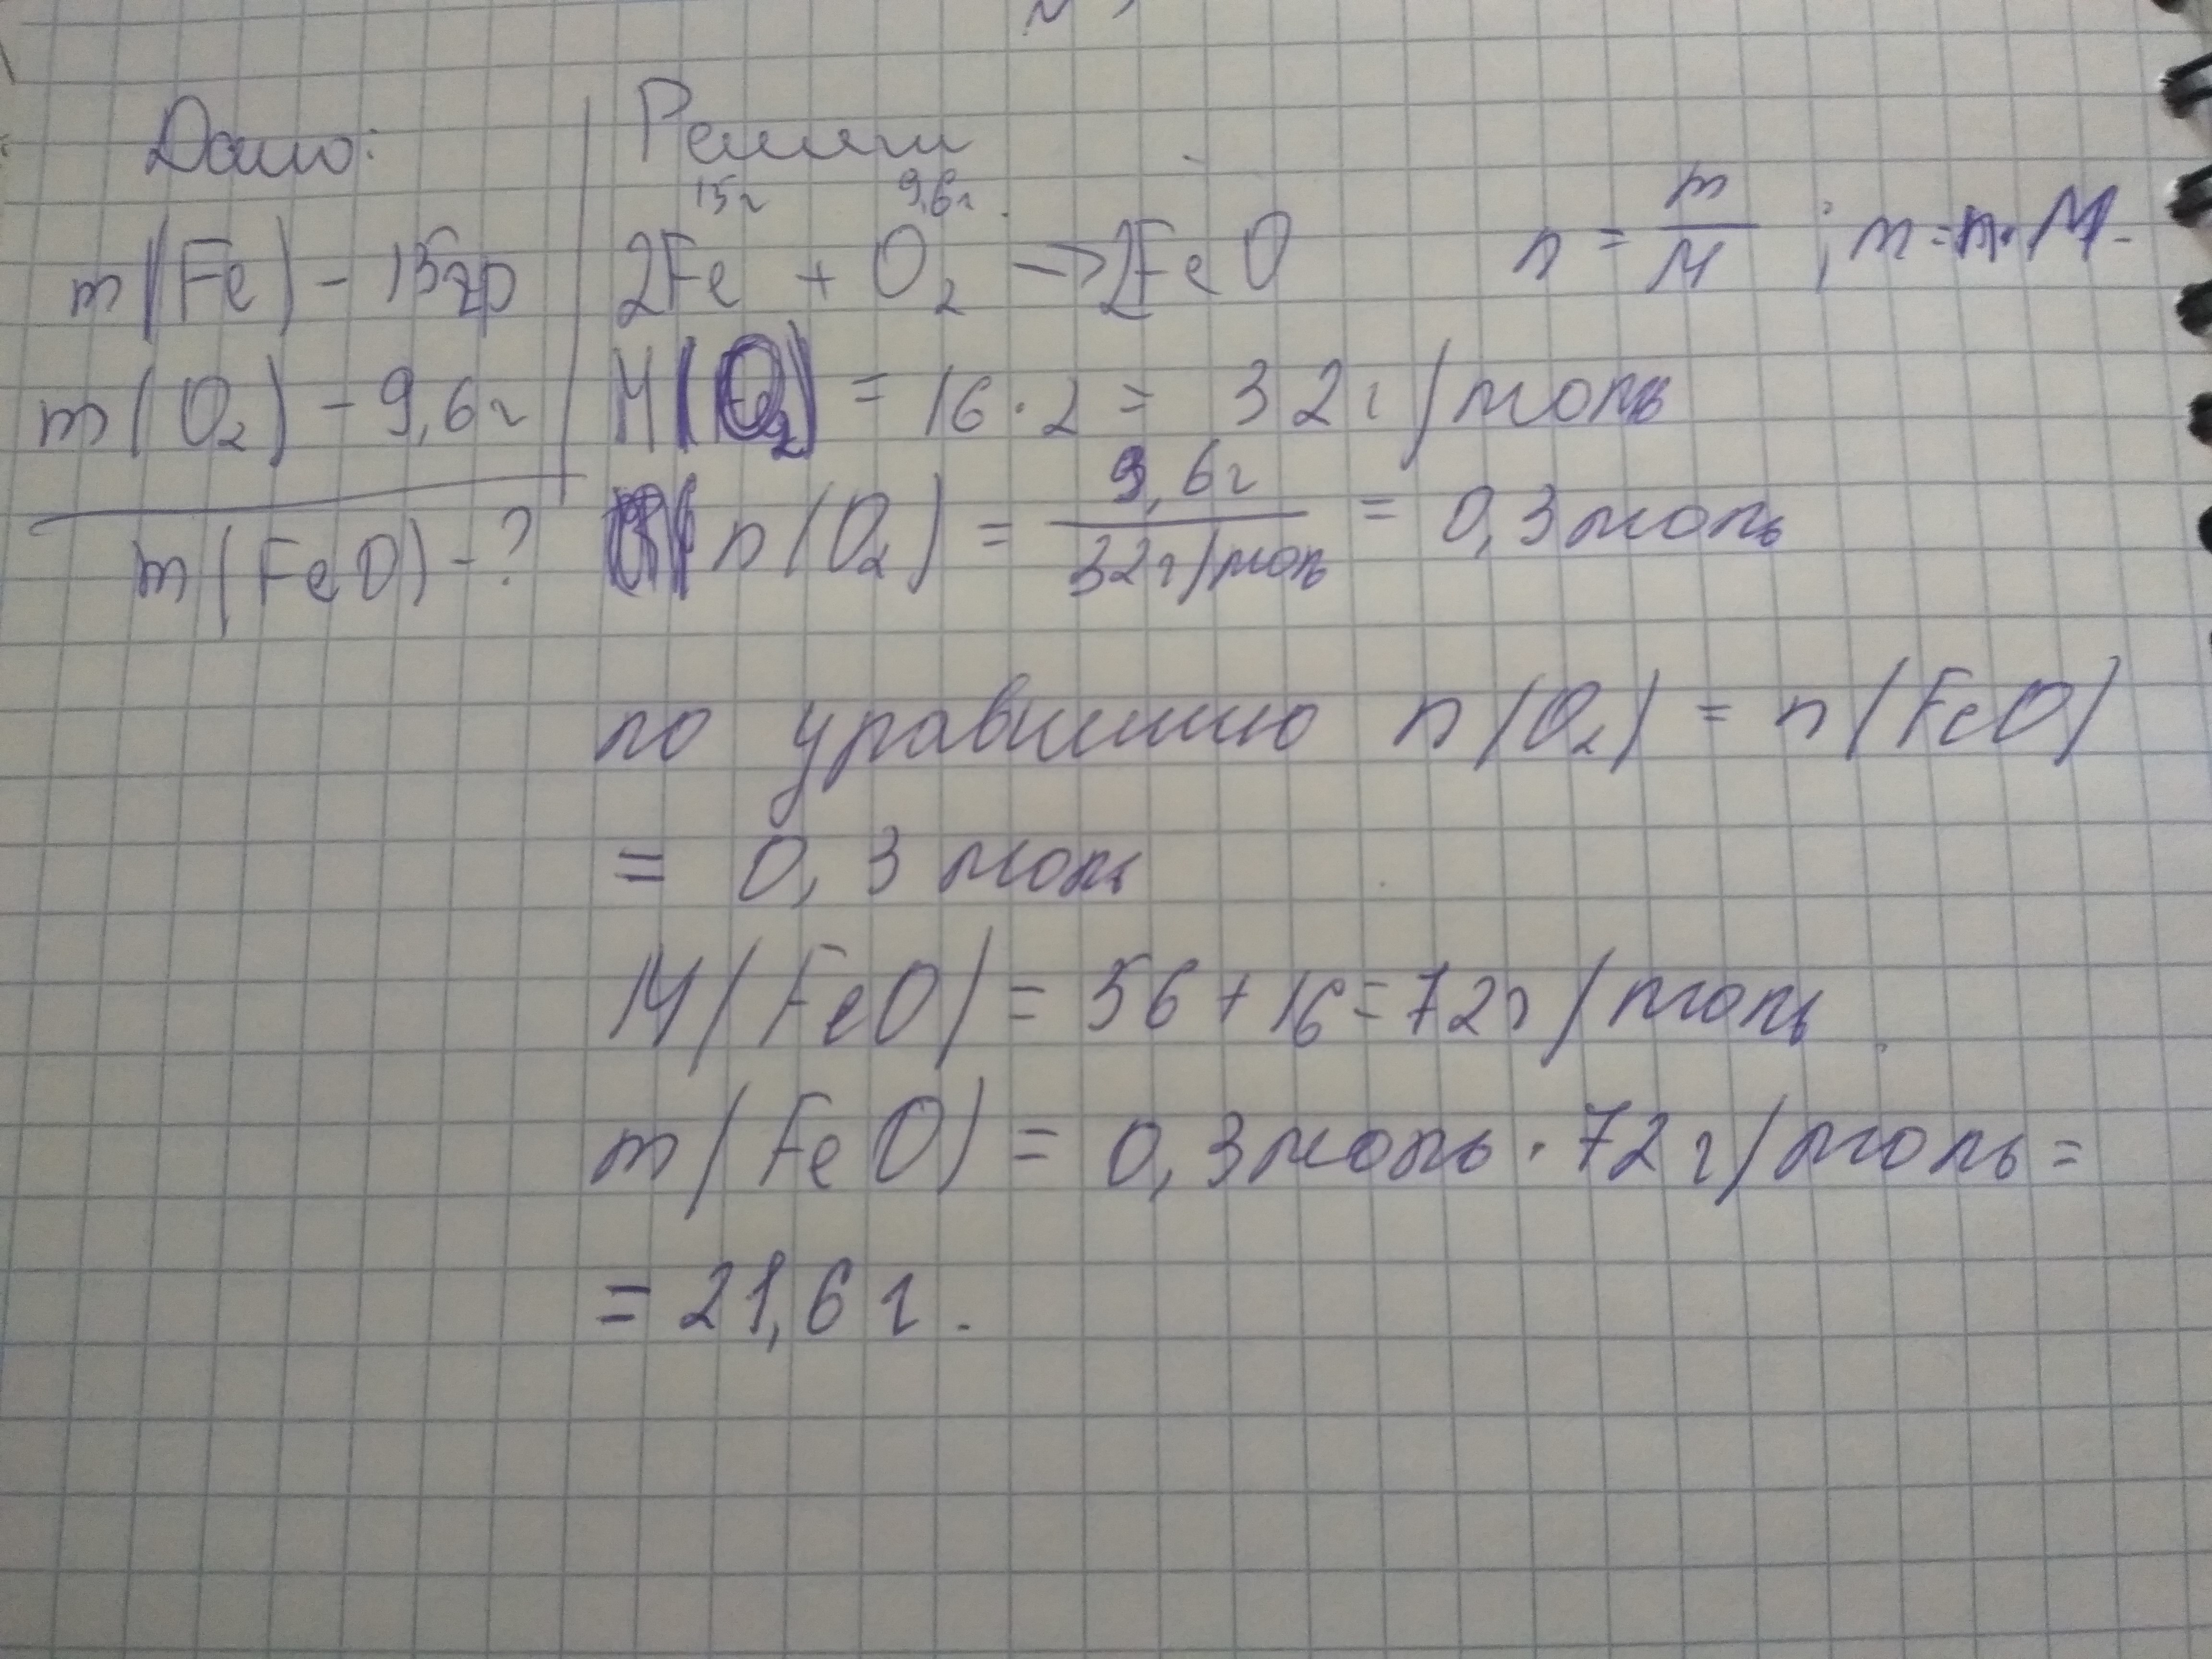 Дано:
m(Fe) - 15гр
m(O₂) - 9,6г
m(FeO) - ?
Решение
15г 9,6г
2Fe + O₂ → 2FeO n = m/M ; m = n · M
M(O₂) = 16 · 2 = 32 г/моль
n(O₂) = 9,6г / 32 г/моль = 0,3 моль
по уравнению n(O₂) = n(FeO)
= 0,3 моль
M(FeO) = 56 + 16 = 72 г/моль
m(FeO) = 0,3 моль · 72 г/моль =
= 21,6 г.